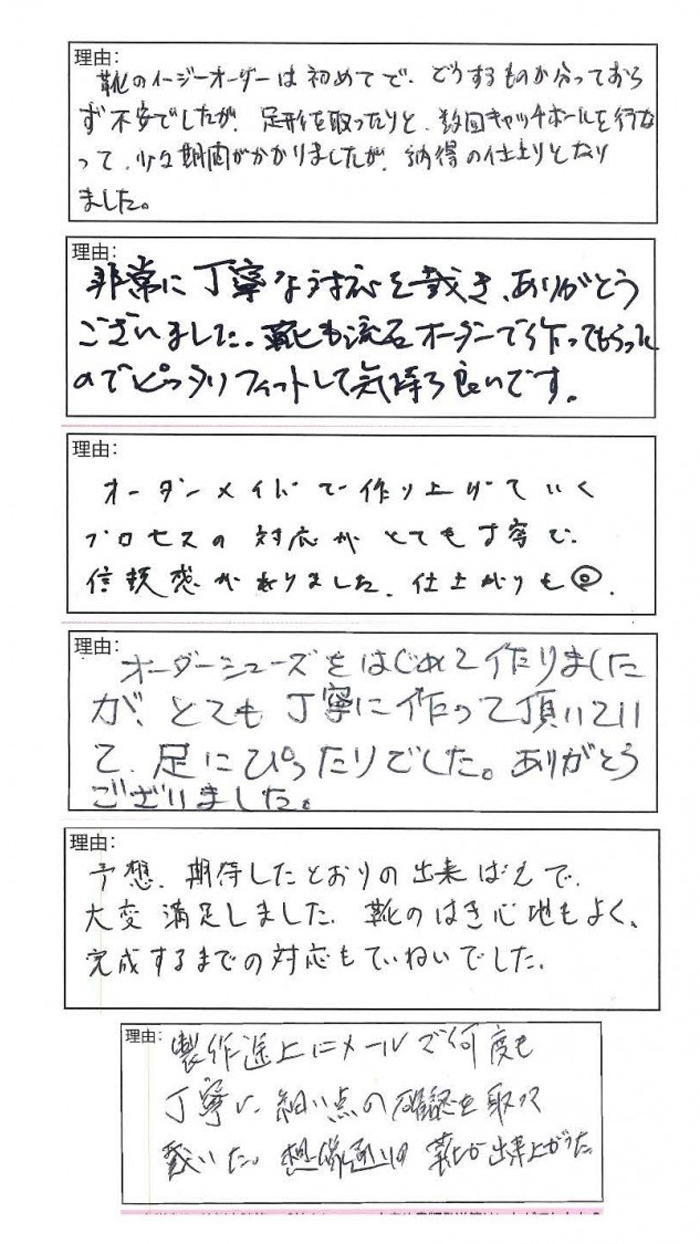 理由:
靴のイージーオーダーは初めてで、どうするものか分っておら
ず不安でしたが、足形を取ったりと、数回キャッチボールを行な
って、少々期間がかかりましたが、納得の仕上りとなり
ました。
理由:
非常に丁寧な対応を戴き、ありがとう
ございました。靴も流石オーダーで作ってもらった
のでピッタリフィットして気持ち良いです。
理由:
オーダーメイドで作り上げていく
プロセスの対応がとても丁寧で、
信頼感がありました。仕上がりも◎.
理由:
オーダーシューズをはじめて作りました
が、とても丁寧に作って頂いてい
て、足にぴったりでした。ありがとう
ございました。
理由:
予想、期待したとおりの出来ばえで、
大変満足しました。靴のはき心地もよく、
完成するまでの対応もていねいでした。
理由:
製作途上にメールで何度も
丁寧に、細い点の確認を取って
戴いた。想像通りの靴が出来上がった。